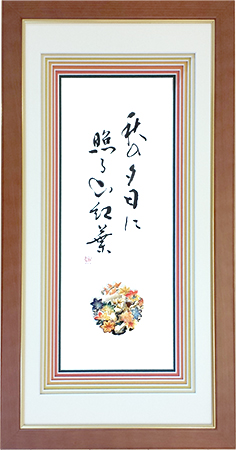 秋の夕日に
照る山紅葉